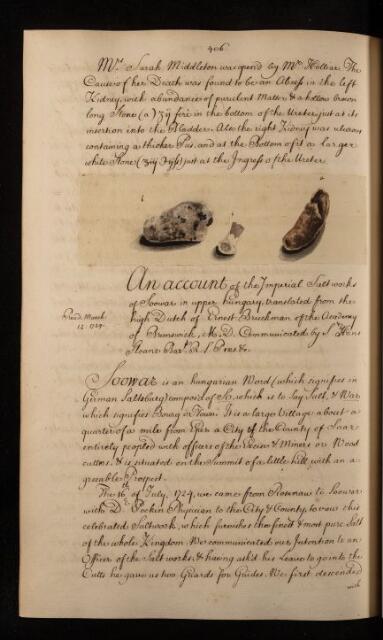 406
Mrs. Sarah Middleton was opened by Mr. The
Cause of her Death was found to be an Abcess in the left
Kidney, with abundance of purulent Matter & a hollow brown
long Stone (a) in the bottom of the Ureter, just at its
insertion into the Bladder. Also the right Kidney was ulcerous
containing a thicker Pus, and at the Bottom of it a larger
white Stone just at the Ingress of the Ureter.
An account of the Imperial Salt works
of Soowar in upper Hungary, translated from the
Read March
12. 1729
high Dutch of Ernest Bruckman of the Academy
of Brunswick, M. D. Communicated by Sr. Hans
Sloane Bart. R. S. Pres &c.
Soowar is an hungarian Word (which signifies in
German Saltsburg) composed of So, which is to say Salt, & War
which signifies Bourg or Town. It is a large Village about a
quarter of a mile from a City of the County of
entirely peopled with officers of the & Miners or Wood
cutters, & is situated on the Summit of a little hill with an a-
greeable Prospect.
The 16th of July, 1724, we came from to Soowar
with Dr. Physician to the City & County, to view this
celebrated Saltwork, which furnishes the finest & most pure Salt
of the whole Kingdom. We communicated our Intention to an
Officer of the Salt works, & having ask'd his Leave to go into the
he gave us two Guards for Guides. We first descended
with